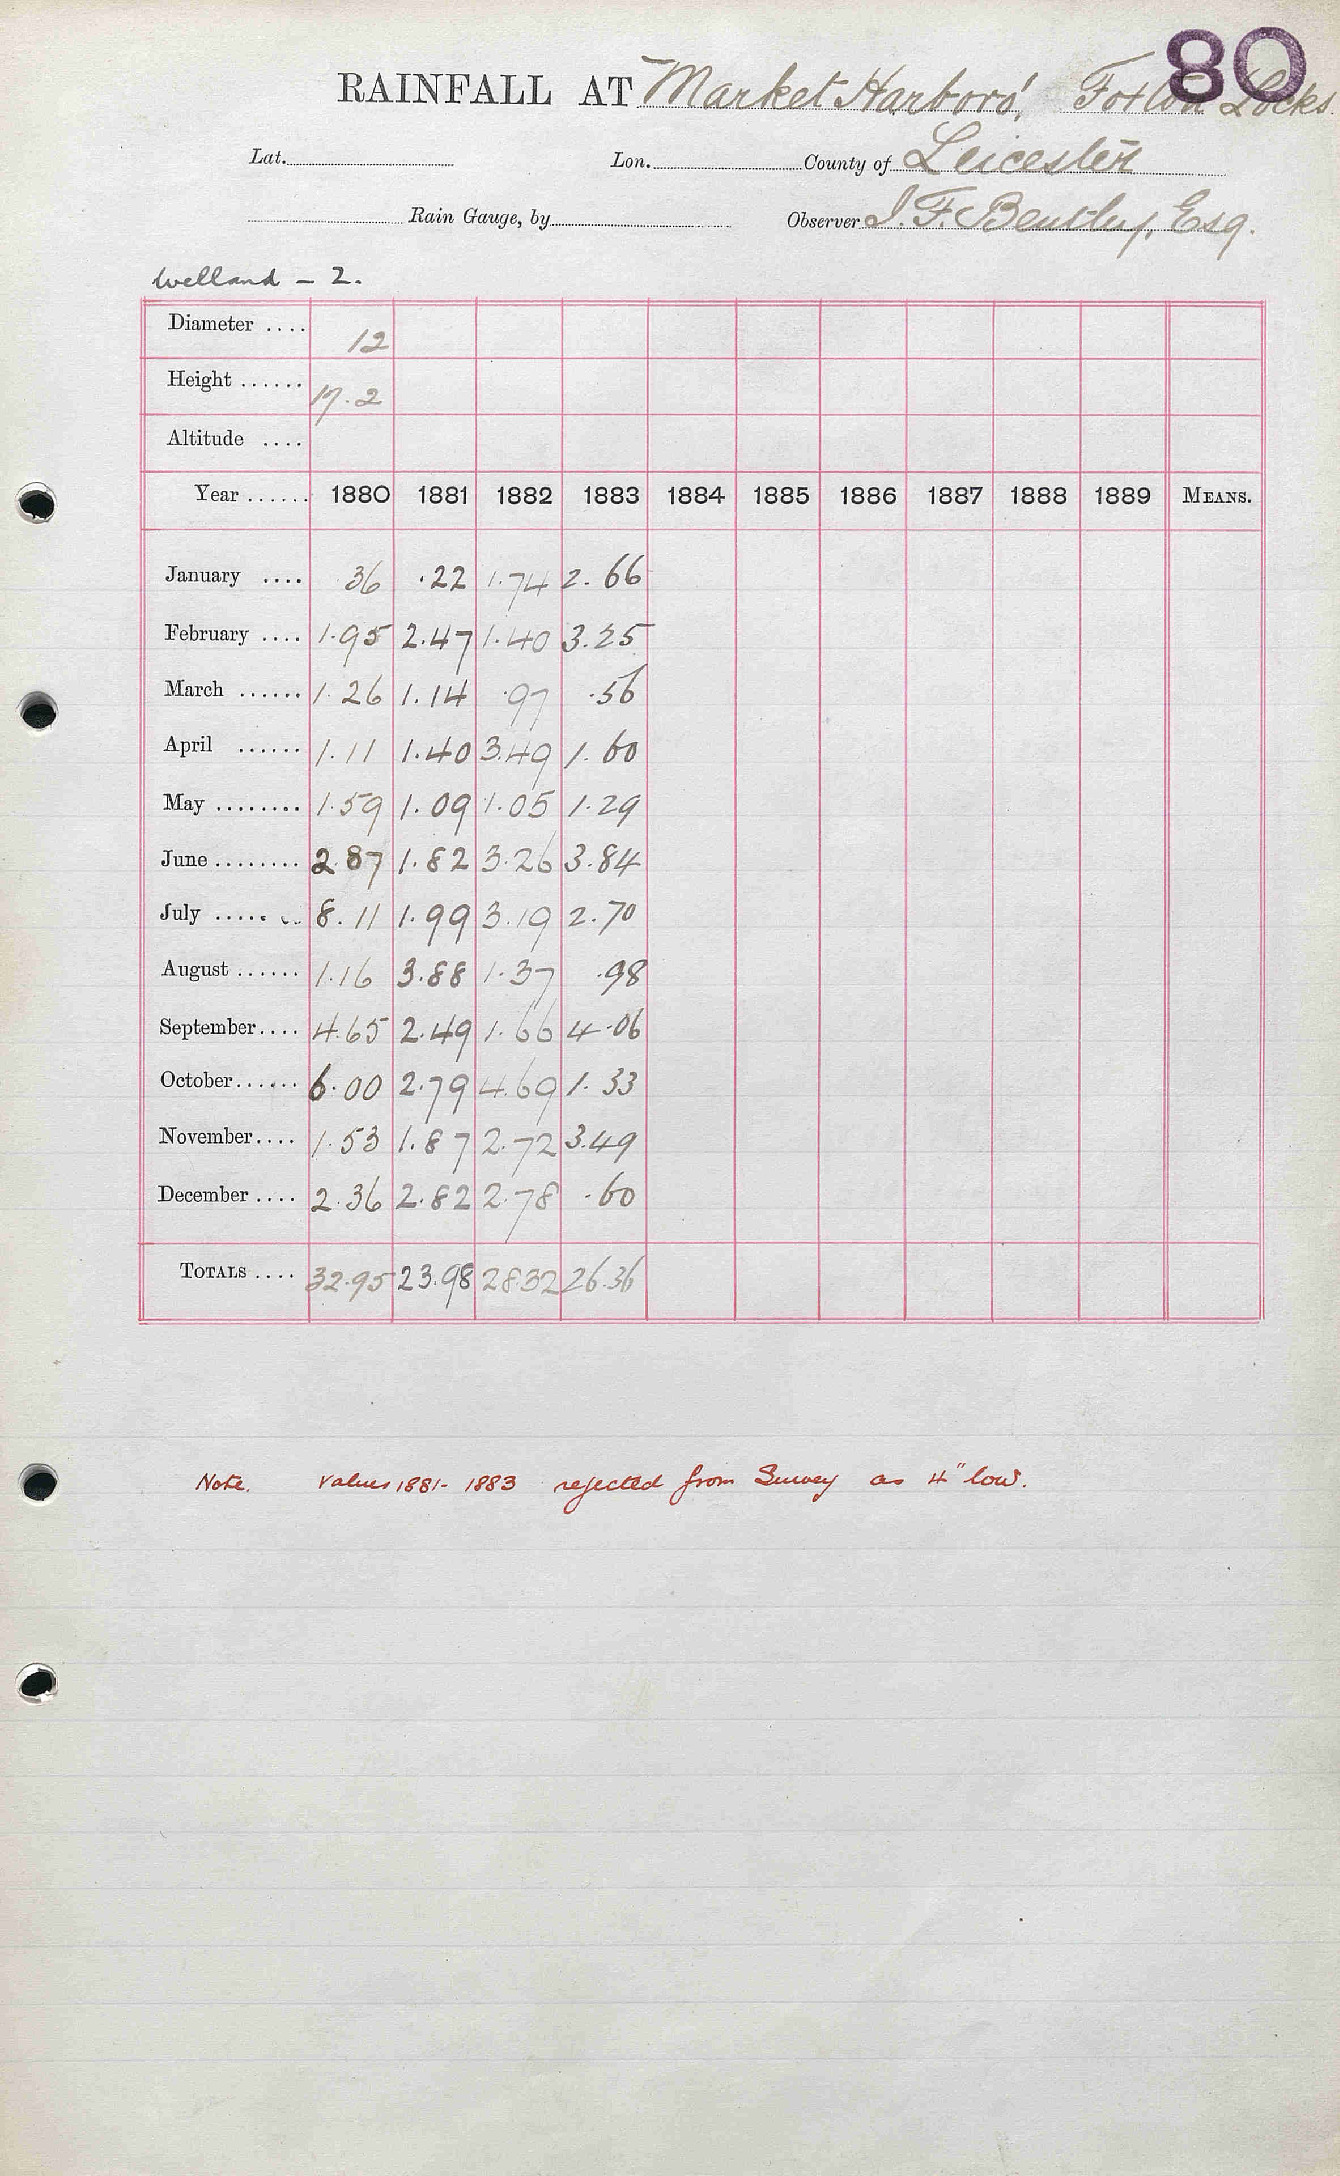 80
RAINFALL AT Market Harboro', Foxton Locks.
Lat. Lon. County of Leicester
Rain Gauge, by Observer J. F. Bentley, Esq.
Welland - 2.
Diameter .... 12
Height ...... 17.2
Altitude ....
Year ...... 1880 1881 1882 1883 1884 1885 1886 1887 1888 1889 MEANS.
January .... 36 .22 1.74 2.66
February .... 1.95 2.47 1.40 3.25
March ...... 1.26 1.14 .97 .56
April ...... 1.11 1.40 3.49 1.60
May ........ 1.59 1.09 1.05 1.29
June ........ 2.87 1.82 3.26 3.84
July ....... 8.11 1.99 3.19 2.70
August ...... 1.16 3.88 1.37 .98
September.... 4.65 2.49 1.66 4.06
October...... 6.00 2.79 4.69 1.33
November.... 1.53 1.87 2.72 3.49
December .... 2.36 2.82 2.78 .60
TOTALS .... 32.95 23.98 28.32 26.36
Note. Values 1881-1883 rejected from Survey as 4" low.